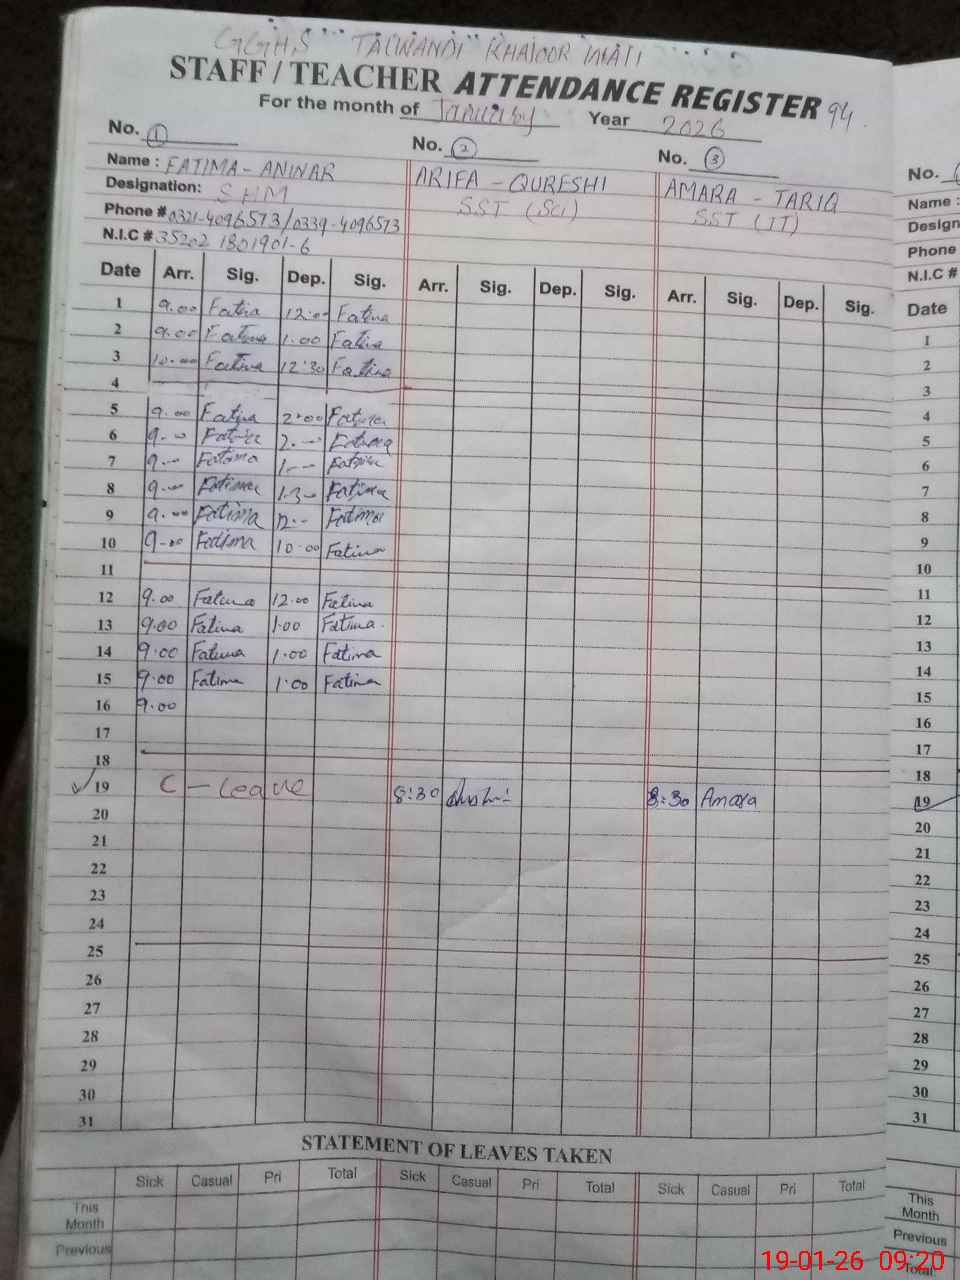 GGHS TALWANDI KHAJOOR WALI
STAFF / TEACHER ATTENDANCE REGISTER 94
For the month of January Year 2026
No. 1 No. 2 No. 3
Name : FATIMA - ANWAR ARIFA - QURESHI AMARA - TARIQ
Designation: SHM SST (Sci) SST (IT)
Phone # 0321-4096573/0339-4096573
N.I.C # 35202 1801901-6
Date Arr. Sig. Dep. Sig. Arr. Sig. Dep. Sig. Arr. Sig. Dep. Sig.
1 9.00 Fatima 12:00 Fatima
2 9.00 Fatima 1.00 Fatima
3 10.00 Fatima 12:30 Fatima
4
5 9.00 Fatima 2:00 Fatima
6 9.00 Fatima 2.— Fatima
7 9.— Fatima 1.— Fatima
8 9.— Fatima Fatima
9 9.00 Fatima Fatima
10 9.00 Fatima 10.00 Fatima
11
12 9.00 Fatima 12.00 Fatima
13 9.00 Fatima 1.00 Fatima
14 9.00 Fatima 1.00 Fatima
15 9.00 Fatima 1.00 Fatima
16 9.00
17
18
19 C - Leave 8:30 8:30 Amara
20
21
22
23
24
25
26
27
28
29
30
31
STATEMENT OF LEAVES TAKEN
Sick Casual Pri Total Sick Casual Pri Total Sick Casual Pri Total
This Month
Previous
No.
Name :
Design
Phone
N.I.C #
Date
1
2
3
4
5
6
7
8
9
10
11
12
13
14
15
16
17
18
19
20
21
22
23
24
25
26
27
28
29
30
31
This Month
Previous
Total
19-01-26 09:20